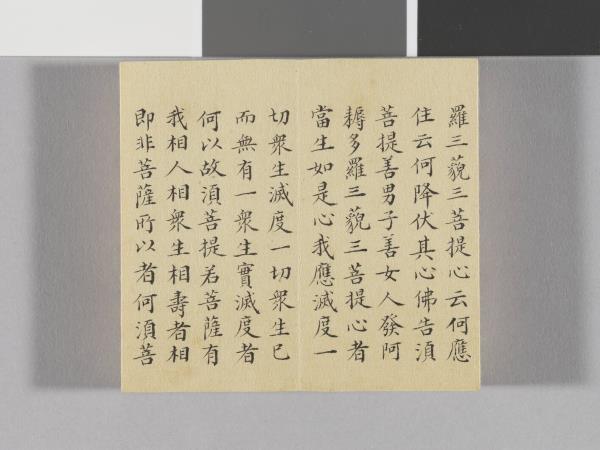 羅三藐三菩提心云何應
住云何降伏其心佛告湏
菩提善男子善女人發阿
耨多羅三藐三菩提心者
當生如是心我應滅度一
切衆生滅度一切衆生已
而無有一衆生實滅度者
何以故湏菩提若菩薩有
我相人相衆生相壽者相
即非菩薩所以者何湏菩